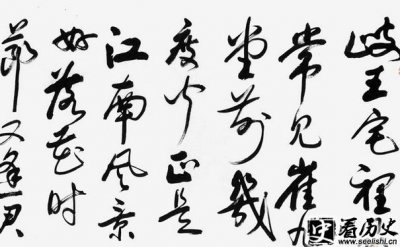 岐王宅裡
常见崔九
堂前幾
度闻正是
江南风景
好落花时
節又逢君
看历史
www.seelishi.cn